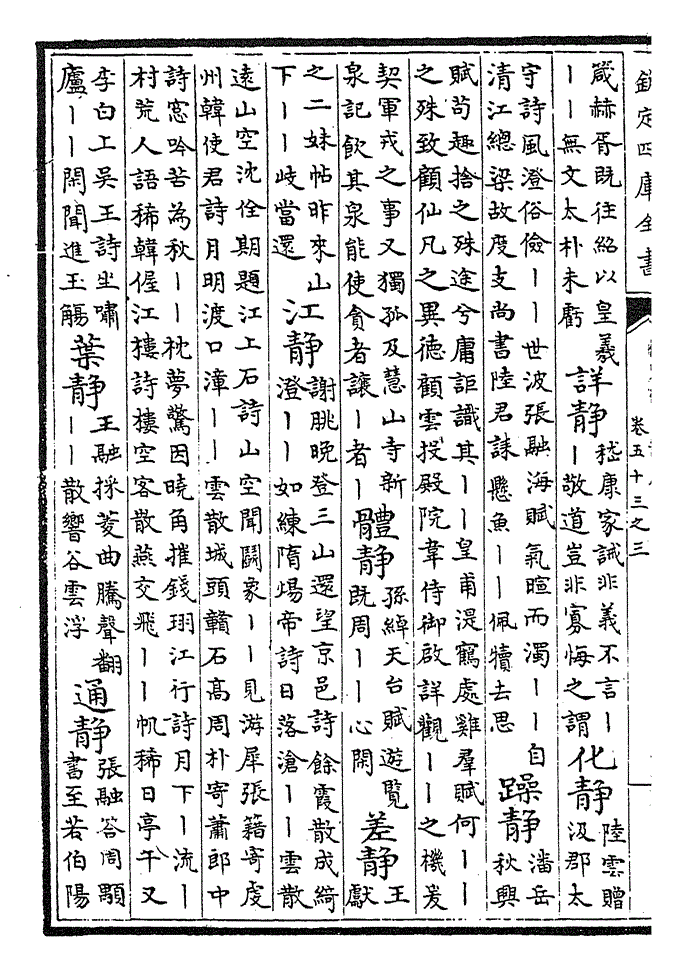 欽定四庫全書
卷五十三之三
箴赫胥既往紹以皇羲
丨丨無文太朴未虧
詳静
嵇康家誡非義不言丨
丨敬道豈非寡悔之謂
化静
陸雲贈
汲郡太
守詩風澄俗儉丨丨世波張融海賦氣暄而濁丨丨自
清江總梁故度支尚書陸君誄懸魚丨丨佩犢去思
躁静
潘岳
秋興
賦苟趣捨之殊途兮庸詎識其丨丨皇甫湜鶴處雞羣賦何丨丨
之殊致顧仙凡之異德顧雲投殿院韋侍御啟詳觀丨丨之機爰
契軍戎之事又獨孤及慧山寺新
泉記飲其泉能使貪者讓丨者丨
體静
孫綽天台賦遊覽
既周丨丨心閑
差静
王
獻
之二妹帖昨來山
下丨丨歧當還
江静
謝朓晚登三山還望京邑詩餘霞散成綺
澄丨丨如練隋煬帝詩日落滄丨丨雲散
遠山空沈佺期題江上石詩山空聞鬬象丨丨見游犀張籍寄虔
州韓使君詩月明渡口漳丨丨雲散城頭贛石高周朴寄蕭郎中
詩窓吟苦為秋丨丨枕夢驚因曉角摧錢珝江行詩月下丨流丨
村荒人語稀韓偓江樓詩樓空客散燕交飛丨丨帆稀日亭午又
李白上吳王詩坐嘯
廬丨丨閑聞進玉觴
葉静
王融採菱曲騰聲翻
丨丨散響谷雲浮
通静
張融答周顒
書至若伯陽